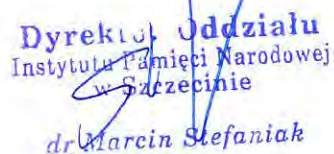 Dyrektor Oddziału
Instytutu Pamięci Narodowej
w Szczecinie
dr Marcin Stefaniak